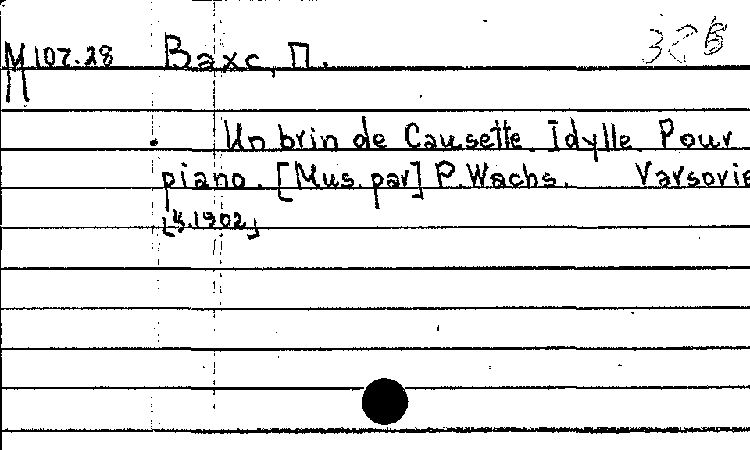 М 107.28 Вахс, П.
Un brin de Causette. Idylle. Pour
piano. [Mus. par] P. Wachs. Varsovie
1902]